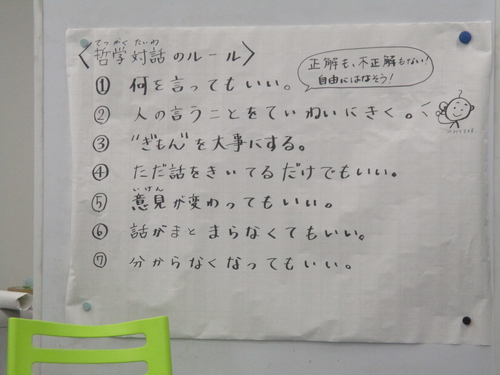 てつがく たいわ
〈哲学対話のルール〉
正解も、不正解もない!
自由にはなそう!
① 何を言ってもいい。
② 人の言うことをていねいにきく。
③ "ぎもん"を大事にする。
④ ただ話をきいてるだけでもいい。
いけん
⑤ 意見が変わってもいい。
⑥ 話がまとまらなくてもいい。
⑦ 分からなくなってもいい。